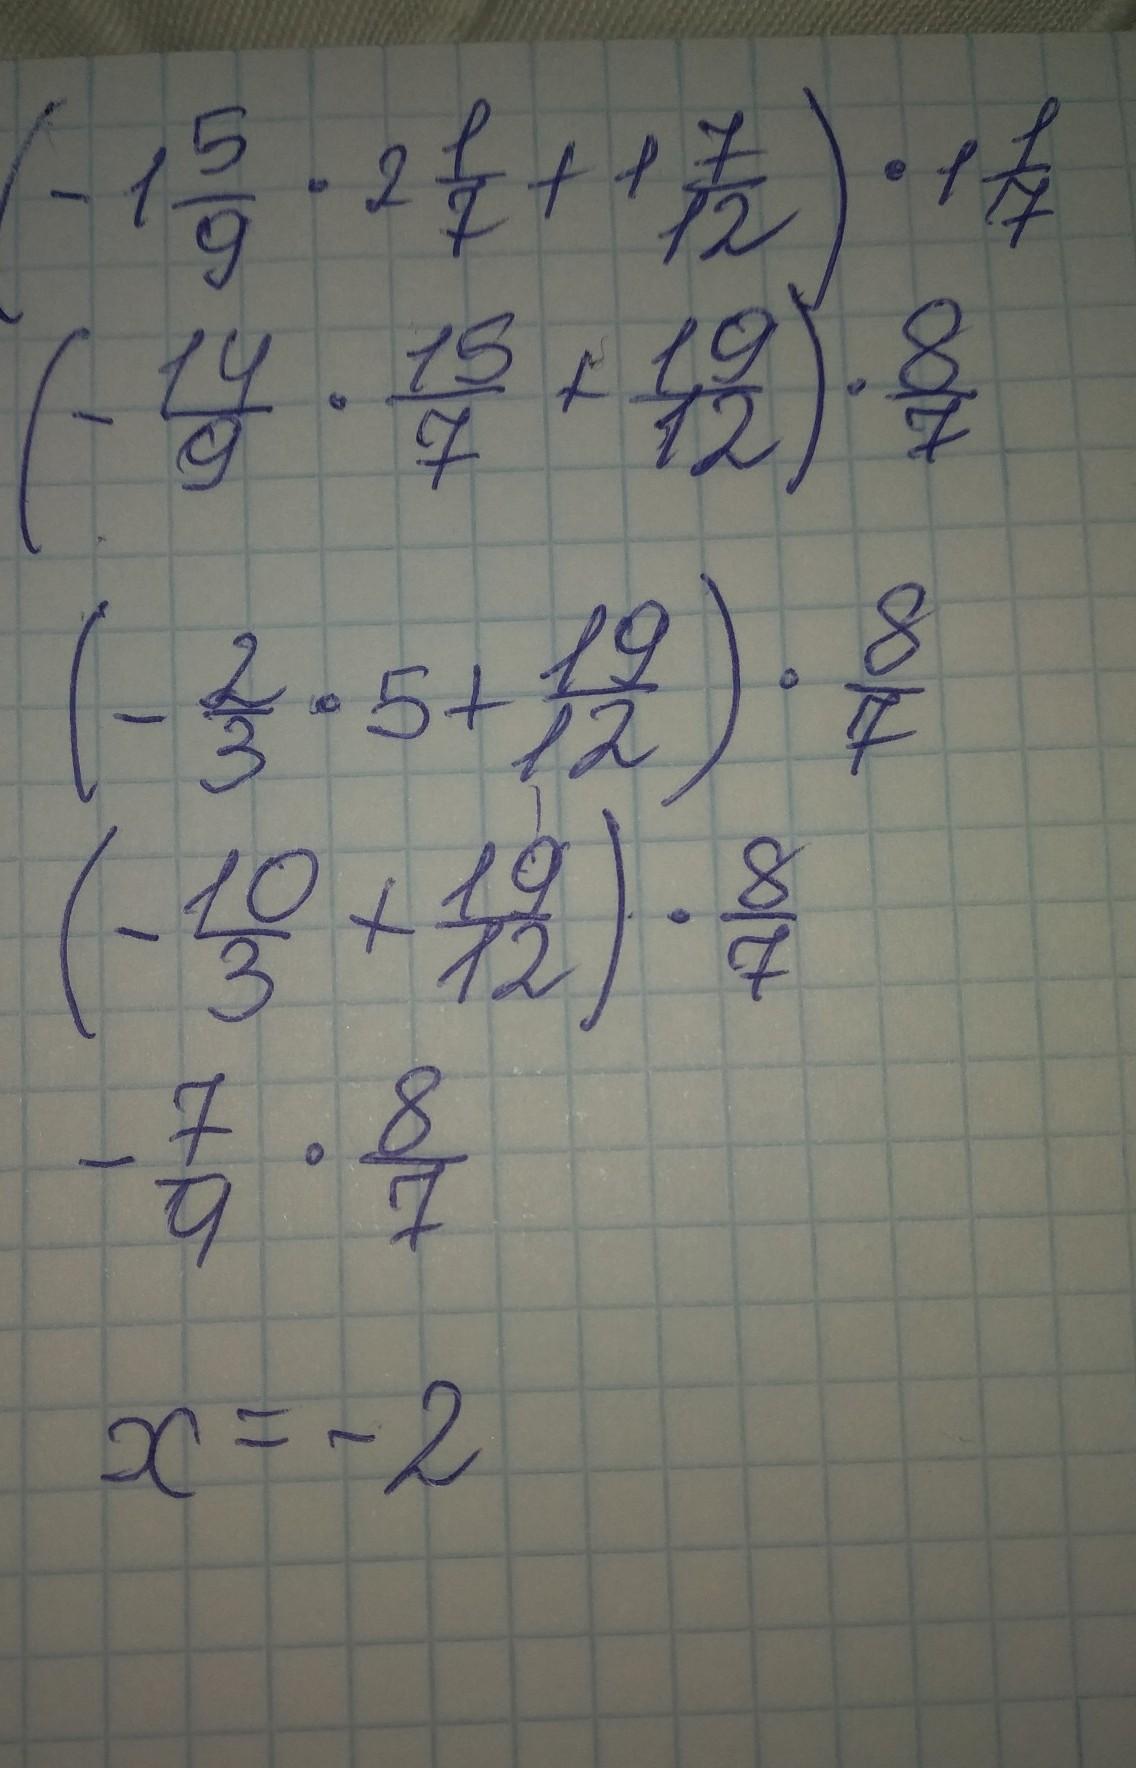 (-1 5/9 · 2 1/7 + 1 7/12) · 1 1/7
(- 14/9 · 15/7 + 19/12) · 8/7
(- 2/3 · 5 + 19/12) · 8/7
(- 10/3 + 19/12) · 8/7
- 7/9 · 8/7
x = -2